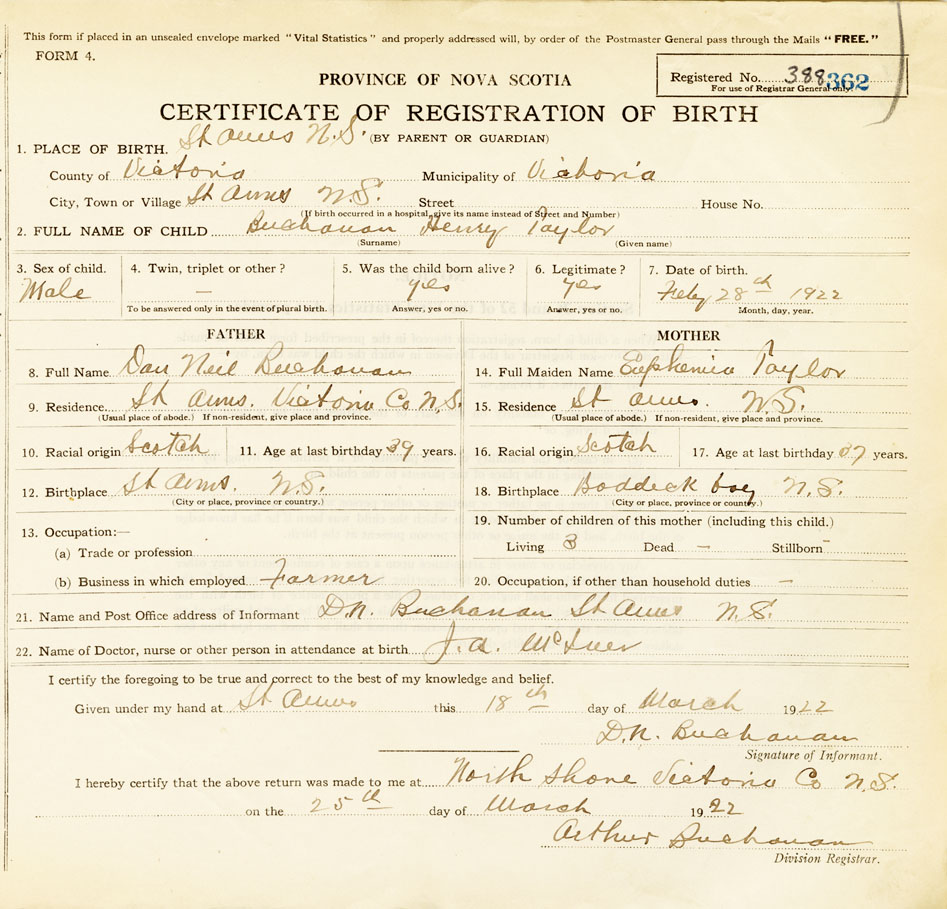 This form if placed in an unsealed envelope marked "Vital Statistics" and properly addressed will, by order of the Postmaster General pass through the Mails "FREE."
FORM 4.
PROVINCE OF NOVA SCOTIA
Registered No. 388 362
For use of Registrar General only.
CERTIFICATE OF REGISTRATION OF BIRTH
(BY PARENT OR GUARDIAN)
1. PLACE OF BIRTH. St Anns N.S.
County of Victoria Municipality of Victoria
City, Town or Village St Anns N.S. Street House No.
(If birth occurred in a hospital, give its name instead of Street and Number)
2. FULL NAME OF CHILD Buchanan Henry Taylor
(Surname) (Given name)
3. Sex of child. 4. Twin, triplet or other? 5. Was the child born alive? 6. Legitimate? 7. Date of birth.
Male — yes yes Feby 28th 1922
To be answered only in the event of plural birth. Answer, yes or no. Answer, yes or no. Month, day, year.
FATHER
8. Full Name Dan Neil Buchanan
9. Residence St Anns. Victoria Co N.S.
(Usual place of abode.) If non-resident, give place and province.
10. Racial origin Scotch 11. Age at last birthday 39 years.
12. Birthplace St Anns. N.S.
(City or place, province or country.)
13. Occupation:—
(a) Trade or profession
(b) Business in which employed Farmer
MOTHER
14. Full Maiden Name Euphemia Taylor
15. Residence St Anns. N.S.
(Usual place of abode.) If non-resident, give place and province.
16. Racial origin Scotch 17. Age at last birthday 37 years.
18. Birthplace Baddeck bay N.S.
(City or place, province or country.)
19. Number of children of this mother (including this child.)
Living 3 Dead — Stillborn -
20. Occupation, if other than household duties —
21. Name and Post Office address of Informant D.N. Buchanan St Anns N.S.
22. Name of Doctor, nurse or other person in attendance at birth J.A.
I certify the foregoing to be true and correct to the best of my knowledge and belief.
Given under my hand at St Anns this 18th day of March 1922
D.N. Buchanan
Signature of Informant.
I hereby certify that the above return was made to me at North Shore Victoria Co N.S.
on the 25th day of March 1922
Arthur Buchanan
Division Registrar.